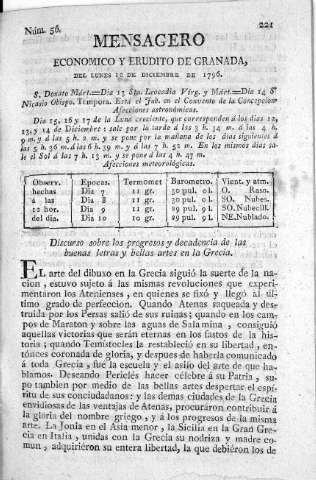 Núm. 56. 221
MENSAGERO
ECONOMICO Y ERUDITO DE GRANADA,
DEL LUNES 12 DE DICIEMBRE DE 1796.
S. Donato Márt.=Dia 13 Sta. Leocadia Virg. y Márt.=Dia 14 Sn
Nicasio Obispo. Tempora. Está el Jub. en el Convento de la Concepcion
Afecciones astronómicas.
Dia 15, 16 y 17 de la Luna creciente, que corresponden á los dias 12,
13, y 14 de Diciembre: sale por la tarde á las 3 h. 34 m. á las 4 h.
9 m. y á las 5 h. 2 m. y se pone por la mañana de los dias siguientes á
las 5 h. 36 m. á las 6 h. 39 m. y á las 7 h. 52 m. En los mismos dias sa-
le el Sol á las 7 h. 13 m. y se pone á las 4 h. 47 m.
Afecciones meteorológicas.
Observ. Epocas. Termomet Barometro. Vient. y atm.
hechas Dia 7 11 gr. 30 pul. 0 l. O. Raso.
á las Dia 8 11 gr. 30 pul. 0 l. SO. Nubes.
12 hor. Dia 9 11 gr. 29 pul. 9 l. SO. Nubecill.
del dia. Dia 10 10 gr. 29 pul. 9 l. NE. Nublado.
Discurso sobre los progresos y decadencia de las
buenas letras y bellas artes en la Grecia.
EL arte del dibuxo en la Grecia siguió la suerte de la na-
cion, estuvo sujeto á las mismas revoluciones que experi-
mentáron los Atenienses, en quienes se fixó y llegó al úl-
timo grado de perfeccion. Quando Atenas saqueada y des-
truida por los Persas salió de sus ruinas; quando en los cam-
pos de Maraton y sobre las aguas de Salamina, consiguió
aquellas victorias que serán eternas en los fastos de la his-
toria; quando Temístocles la restableció en su libertad, en-
tónces coronada de gloria, y despues de haberla comunicado
á toda Grecia, fué la escuela y el asilo del arte de que ha-
blamos. Deseando Periclés hacer célebre á su Patria, su-
po tambien por medio de las bellas artes despertar el espí-
ritu de sus conciudadanos: y las demas ciudades de la Grecia
envidiosas de las ventajas de Atenas, procuráron contribuir á
la gloria del nombre griego, y á los progresos de la misma
arte. La Jonia en el Asia menor, la Sicilia en la Gran Gre-
cia en Italia, unidas con la Grecia su nodriza y madre co-
mun, adquiriéron su entera libertad, la que debiéron los de